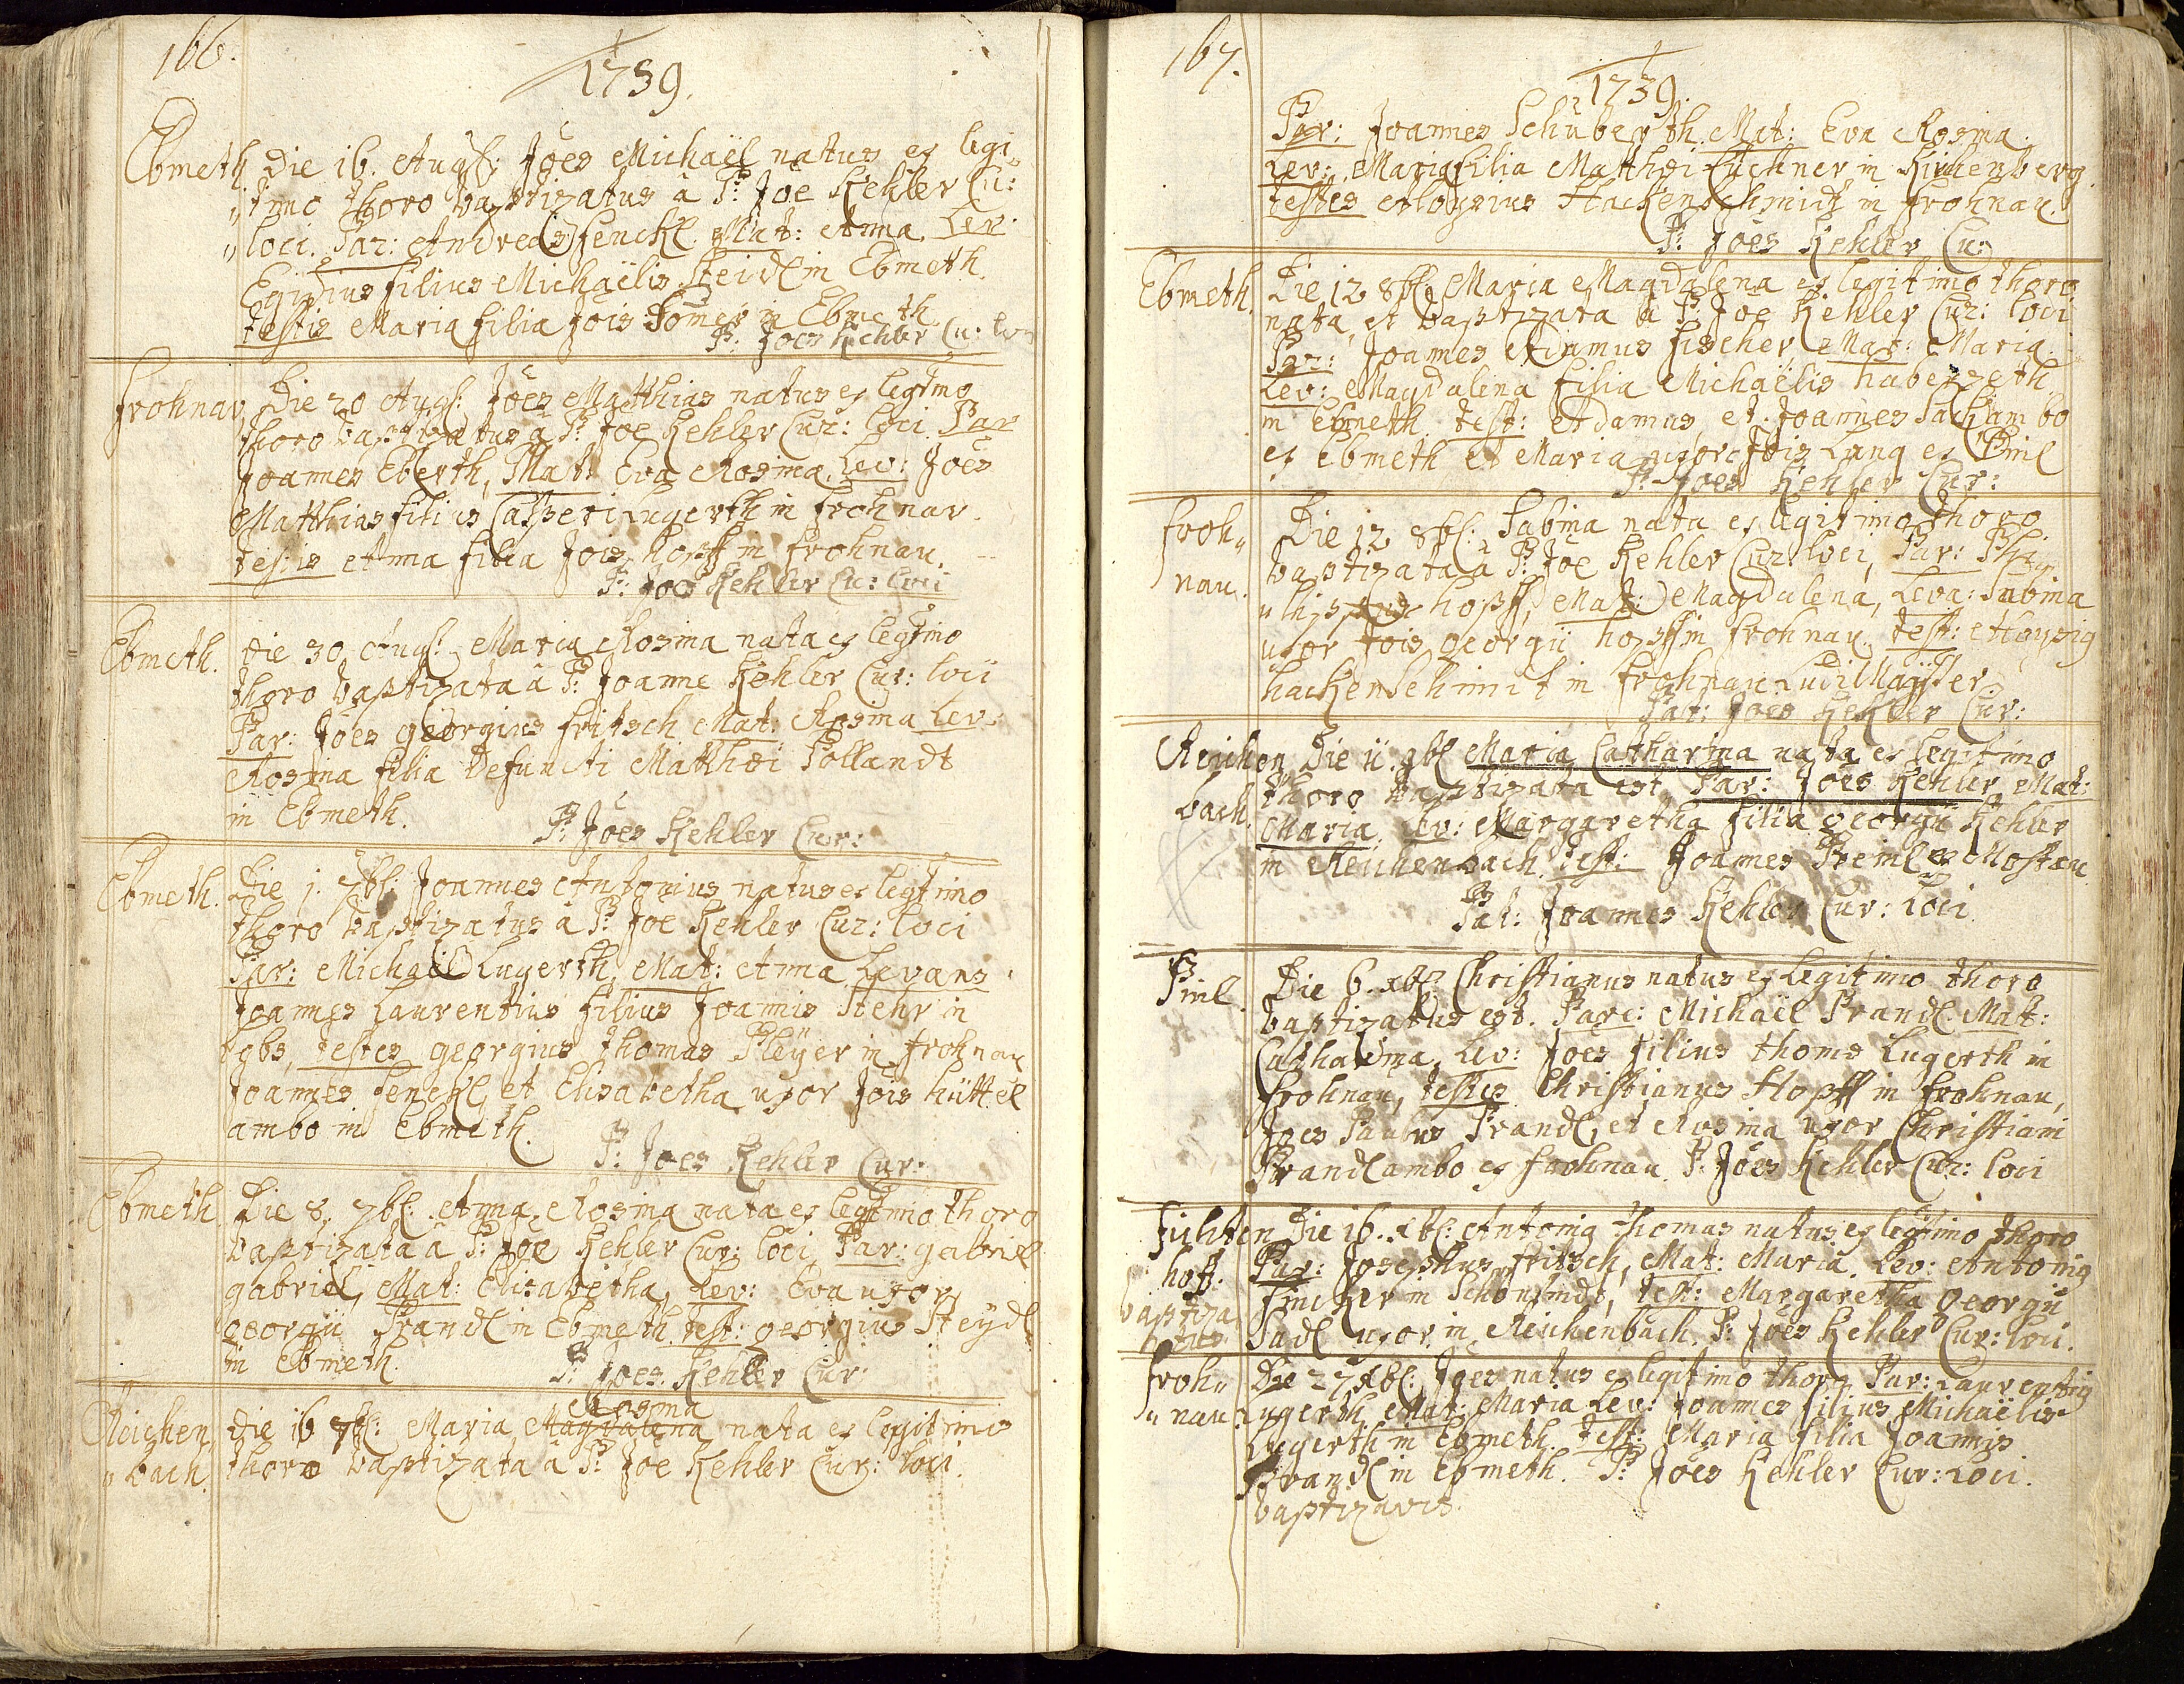 166.
1739.
Ebmeth Die 16. Augs: Joes Michaël natus ex legi„
„timo thoro baptizatus à P: Joe Kehler Cu:
„loci. Par: Andreas Fenckl. Mat: Anna. Lev:
Egidius filius Michaëlis Steidl in Ebmeth.
testis Maria filia Jois Somer in Ebmeth.
P: Joes Kehler Cu: loci
Frohnau Die 20 Augs: Joes Matthias natus ex legtmo
thoro baptizatus à P: Joe Kehler Cur: loci. Par
Joannes Eberth, Mat: Eva Rosina. Lev: Joes
Matthias filius Casperi Lugerth in Frohnau.
testis Anna filia Jois Hopff in Frohnau.
P: Joes Kehler Cu: loci
Ebmeth. Die 30. Augs: Maria Rosina nata ex legtimo
thoro baptizata à P: Joanne Kehler Cur: loci
Par: Joes Georgius Fritsch Mat: Rosina Lev:
Rosina filia Defuncti Matthæi Pollandt
in Ebmeth.
P: Joes Kehler Cur:
Ebmeth. Die 1. 7bl: Joannes Antonius natus ex legtimo
thoro baptizatus à P: Joe Kehler Cur: loci
Par: Michaël Lugerth, Mat: Anna. Levans
Joannes Laurentius filius Joannis Stehr in
testes Georgius Thomas Pleyer in Frohnau
Joannes Fenckl et Elisabetha uxor Jois Hüttel
ambo in Ebmeth.
P: Joes Kehler Cur:
Ebmeth Die 8. 7bl: Anna Rosina nata ex legtimo thoro
baptizata à P: Joe Kehler Cur: loci, Par: Gabriel
Gabriel, Mat: Elisabetha, Lev: Eva uxor
Georgii Prandl in Ebmeth. test: Georgius Steydl
in Ebmeth.
P: Joes Kehler Cur:
Rosina
Reichen„ Die 16 7bl: Maria Magdalena nata ex legitimo
„bach. thoro baptizata à P: Joe Kehler Cur: loci.
167.
1739.
Par: Joannes Schuberth. Mat: Eva Rosina.
Lev: Maria filia Matthæi Puchner in Kirchenberg.
testes Aloysius Hackenschmidt in Frohnau.
P: Joes Kehler Cu:
Ebmeth. Die 12 8bl: Maria Magdalena ex legitimo thoro
nata, et baptizata à P: Joe Kehler Cur: loci
Par: Joannes Adamus Fischer, Mat: Maria.
Lev: Magdalena filia Michaëlis Haberzeth
in Ebmeth. test: Adamus, et Joannes Sack ambo
ex Ebmeth et Maria uxor Jois Lang ex Piml
P: Joes Kehler Cur:
Froh„ Die 12 8bl: Sabina nata ex legitimo thoro
nau. baptizata à P: Joe Kehler Cur: loci, Par: Phi„
„lippus Hopff, Mat: Magdalena, Leva: Sabina
uxor Jois Georgii Hopff in Frohnau. test: Aloysig
Hackenschmit in Frohnau Ludi Magister.
Pat: Joes Kehler Cur:
Reichen Die 11. 9bl Maria Catharina nata ex legitimo
bach. thoro baptizata est, Par: Joes Kehler Mat:
Maria. Lev: Margaretha filia Georgii Kehler
in Reichenbach. test: Joannes Preiml ex Mostau
Pat: Joannes Kehler Cur: loci.
Piml Die 6. xbl: Christianus natus ex legitimo thoro
baptizatus est. Pare: Michaël Prandl. Mat:
Catharina, Lev: Joes filius Thomæ Lugerth in
Frohnau, testes Christianus Hopff in Frohnau,
Joes Paulus Prandl, et Rosina uxor Christiani
Prandl ambo ex Frohnau. P: Joes Kehler Cur: loci
Fichten Die 16. xbl: Antonig Thomas natus ex legtimo thoro
hoff. Par: Josephus Fritsch, Mat: Maria. Lev: Antonig
baptiza Fincker in Schönfindt, test: Margaretha Georgii
Sadl uxor in Reichenbach. P: Joes Kehler Cur: loci.
Froh„ Die 27 xbl: Joes natus ex legitimo thoro Par: Laurentig
„nau. Lugerth Mat: Maria Lev: Joannes filius Michaëlis
Lugerth in Ebmeth. test: Maria filia Joannis
Prandl in Ebmeth. P: Joes Kehler Cur: loci.
baptizavit.